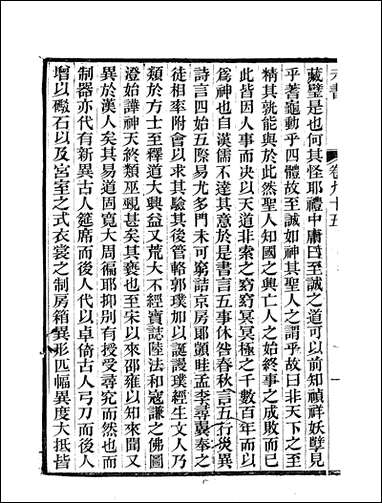 元書　卷九十五
藏璧是也何其怪耶禮中庸曰至誠之道可以前知禎祥妖孽見
乎蓍龜動乎四體故至誠如神其聖人之謂乎故曰非天下之至
精其孰能與於此然聖人知國之興亡人之始終事之成敗而已
此皆因人事而決以天道非索之窈窈冥冥極之千數百年而以
爲神也自漢儒不達其意於是書言五事休咎春秋言五行災異
詩言四始五際易尤多門未可窮詰京房郎顗眭孟李尋襄奉之
徒相率附會以求其驗其後管輅郭璞加以誕謾璞經生文人乃
類於方士至釋道大興益又荒大不經寶誌陸法和寇謙之佛圖
澄始譁神天終類巫覡甚矣其褻也至宋以來邵雍以知來聞又
異於漢人矣其易圖寬大周徧耶抑別有授受尋究而然也而
制器亦代有新異古人筵席而後人代以卓倚古人弓刀而後人
增以礮石以及宮室之式衣裳之制房箱異形匹幅異度大抵皆